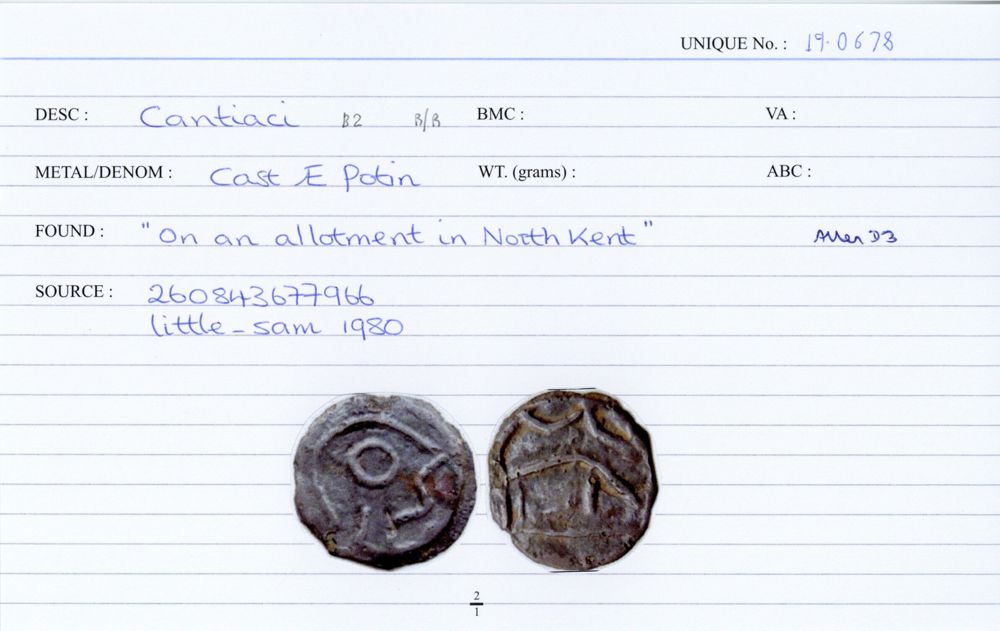 UNIQUE No. : 19.0678
DESC : Cantiaci B2 B/B BMC : VA :
METAL/DENOM : Cast Æ Potin WT. (grams) : ABC :
FOUND : "On an allotment in North Kent" Allen D3
SOURCE : 260843677966
little-sam 1980
2
1